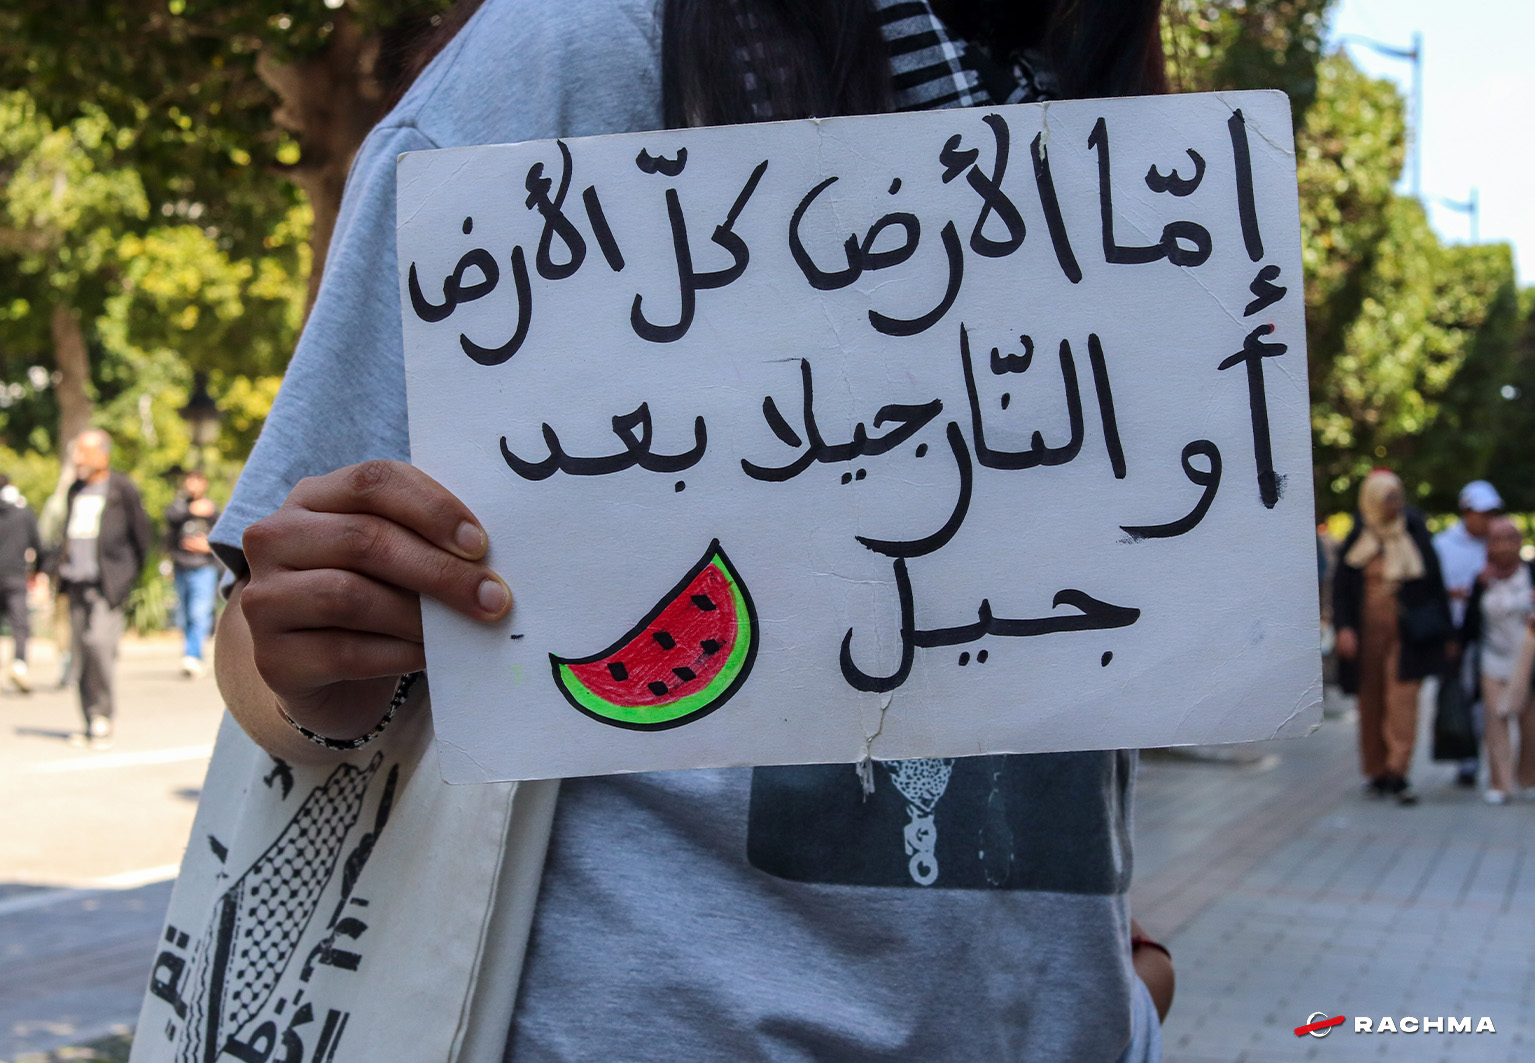 إمّا الأرض كلّ الأرض
أو النّار جيلا بعد
جيل
RACHMA